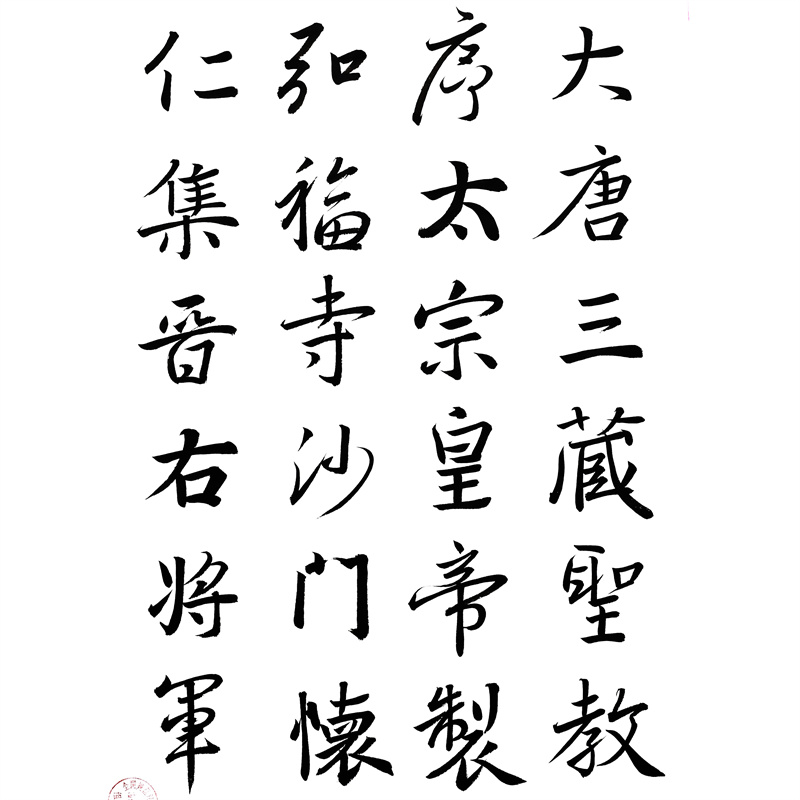 大唐三藏聖教
序太宗皇帝製
弘福寺沙门懷
仁集晋右将軍